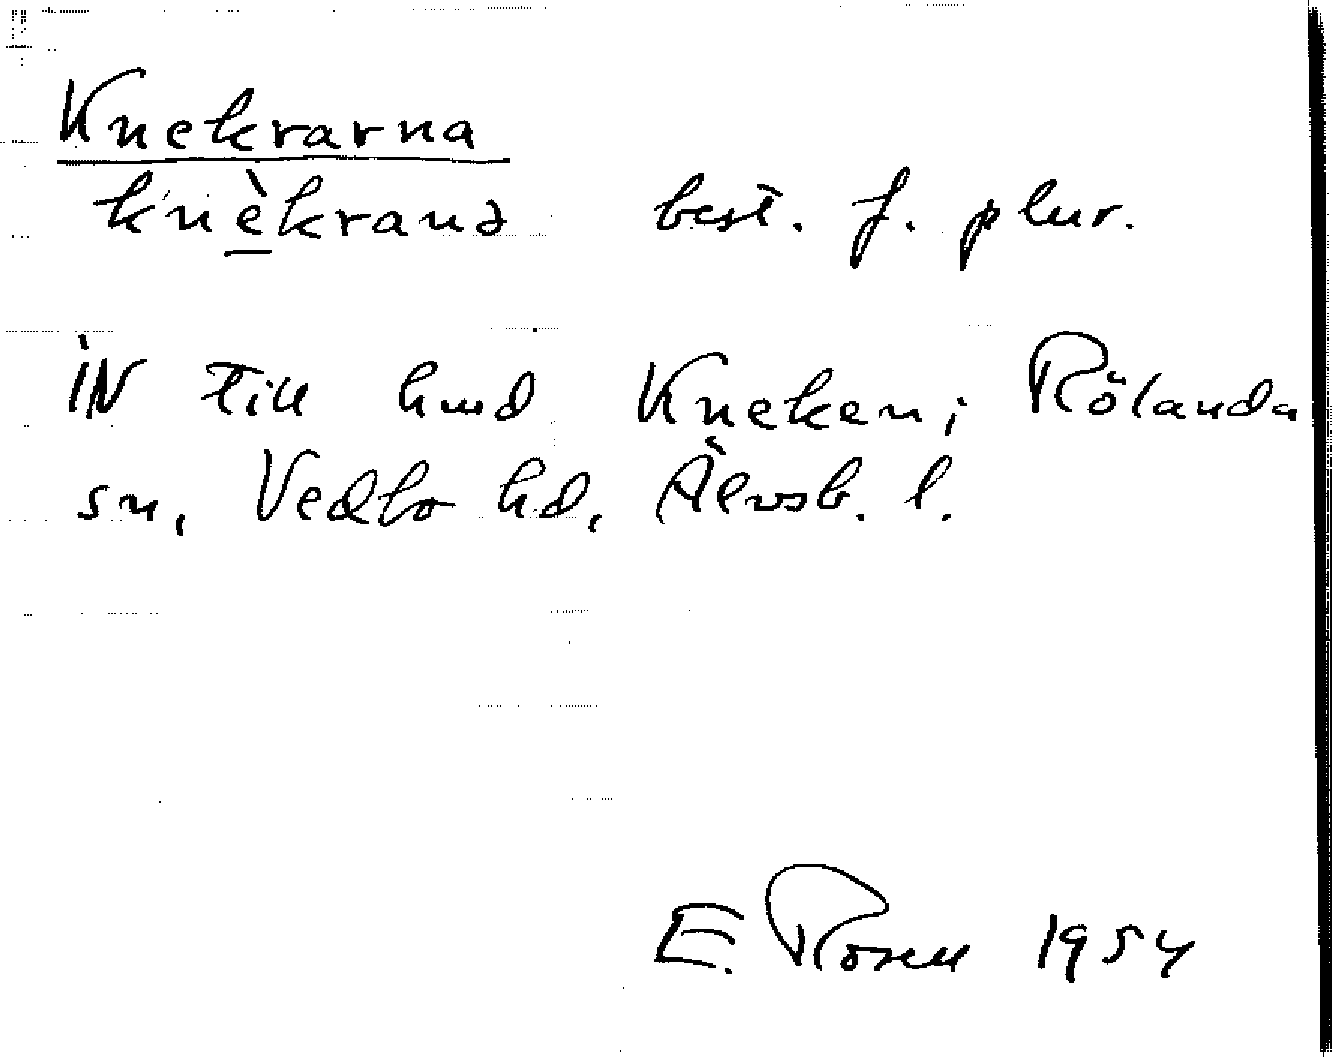 Knekrarna
knèkrana best. f. plur.
IN till hmd Kneken i Rölanda
sn, Vedbo hd, Älvsb. l.
E. Rosen 1954